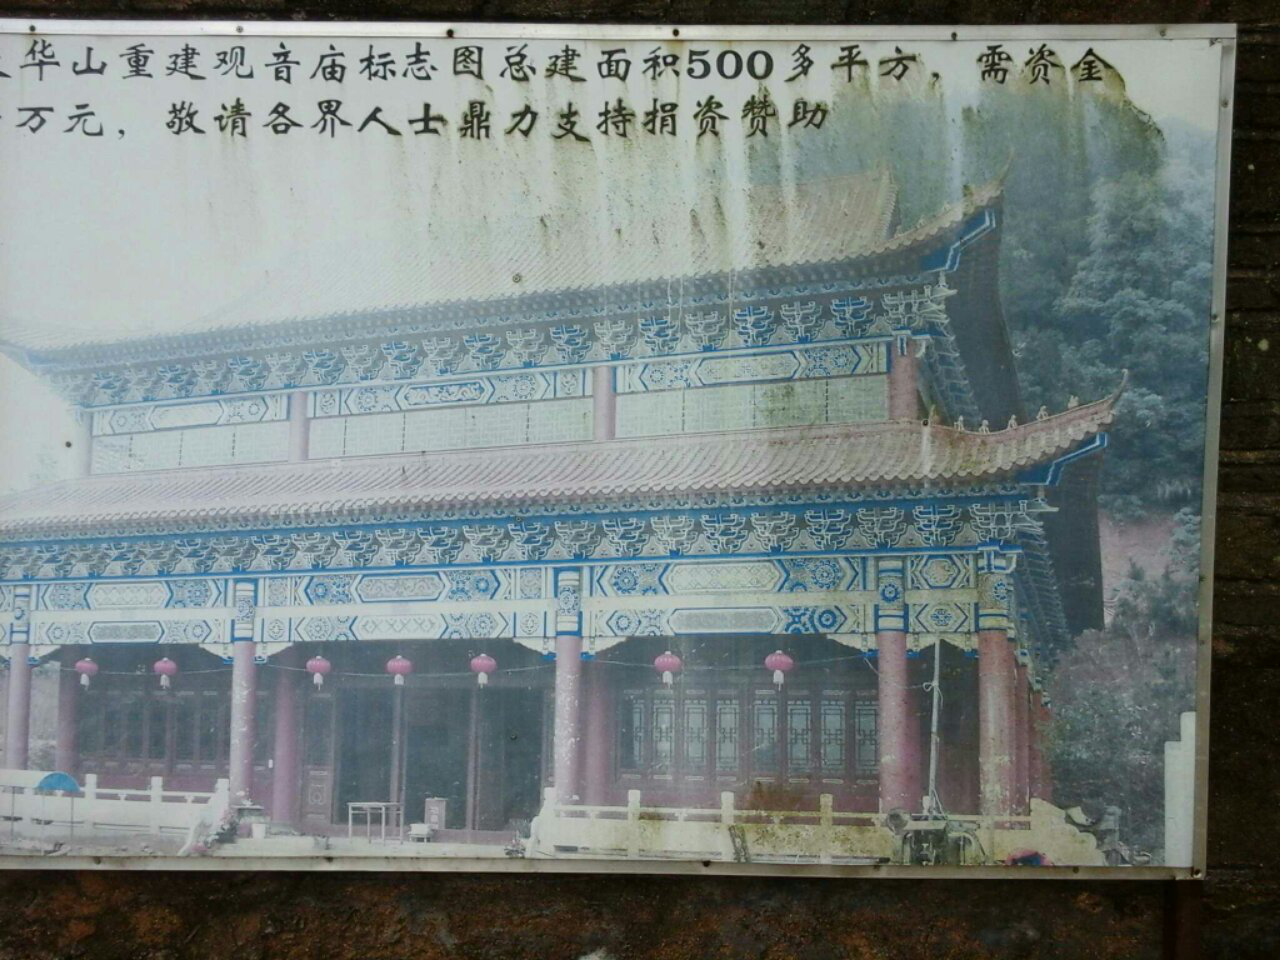 华山重建观音庙标志图总建面积500多平方，需资金
万元，敬请各界人士鼎力支持捐资赞助